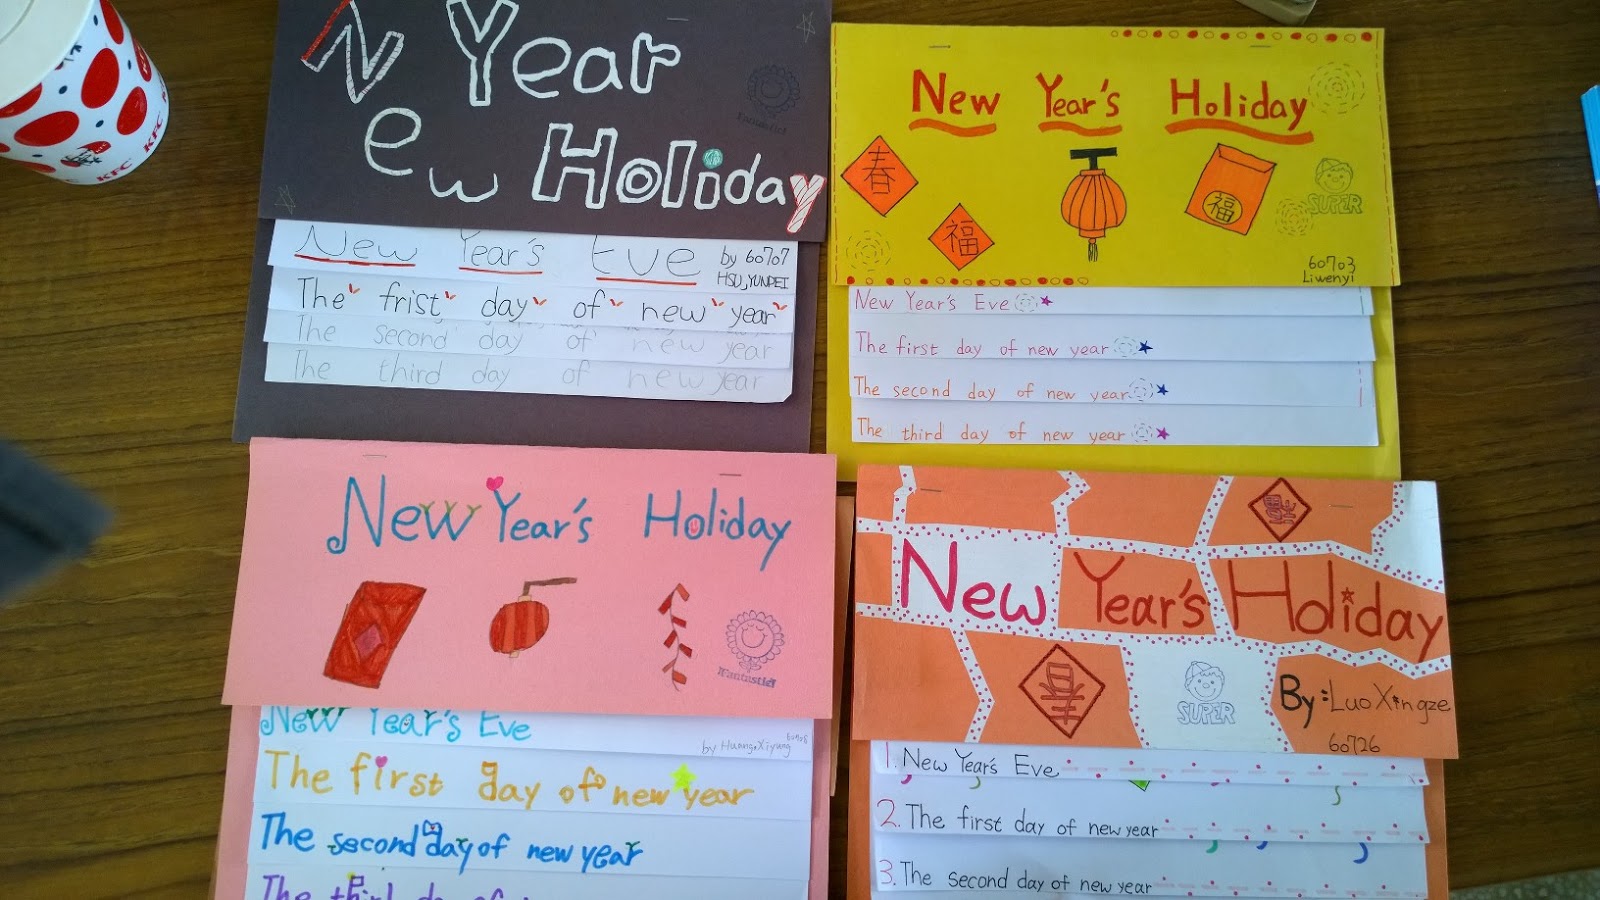 KFC KFC
New Year
Holiday
Fantastic!
New Year's Eve
by 60707
HSU,YUNPEI
The frist day of new year
The second day of new year
The third day of new year
New Year's Holiday
春
福
福
SUPER
60703
Liwenyi
New Year's Eve
The first day of new year
The second day of new year
The third day of new year
New Year's Holiday
Fantastic!
New Year's Eve
by Huang,Xiyung
The first day of new year
The second day of new year
The third day of
New Year's Holiday
SUPER
By:Luo Xingze
60726
1. New Year's Eve
2. The first day of new year
3. The second day of new year